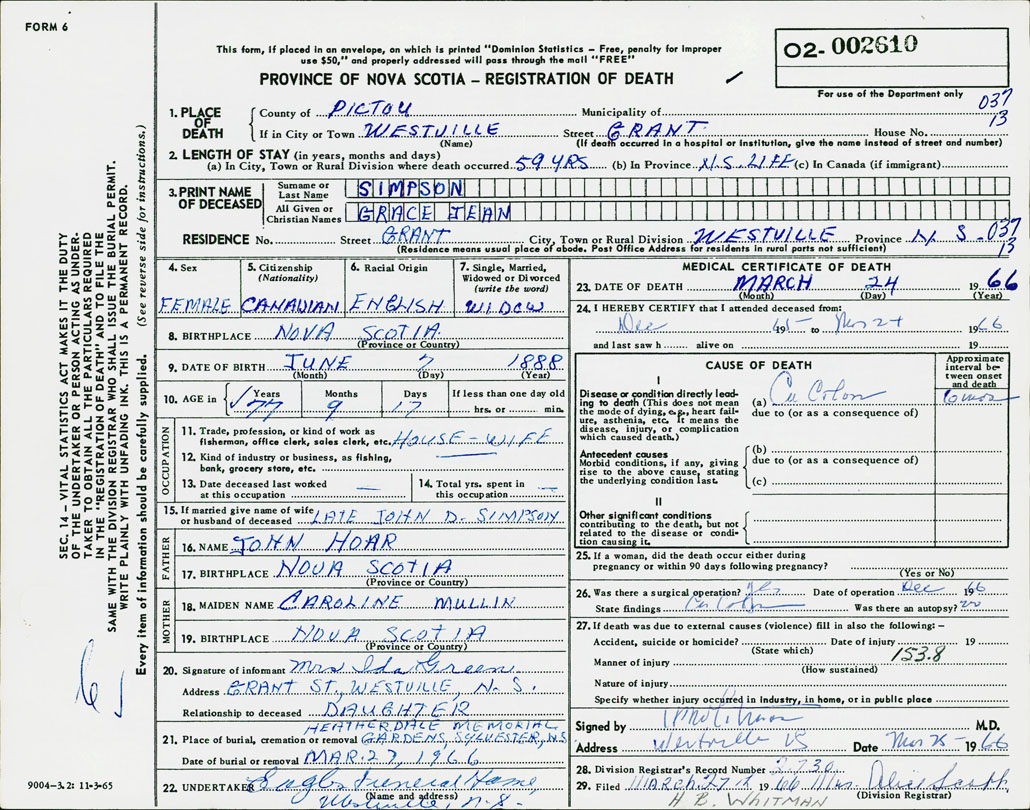 FORM 6
This form, if placed in an envelope, on which is printed "Dominion Statistics – Free, penalty for improper
use $50," and properly addressed will pass through the mail "FREE"
PROVINCE OF NOVA SCOTIA – REGISTRATION OF DEATH
02- 002610
For use of the Department only
037
13
1. PLACE OF DEATH
County of PICTOU Municipality of
If in City or Town WESTVILLE Street GRANT. House No.
(Name) (If death occurred in a hospital or institution, give the name instead of street and number)
2. LENGTH OF STAY (in years, months and days)
(a) In City, Town or Rural Division where death occurred 59 YRS (b) In Province N.S. LIFE (c) In Canada (if immigrant)
3. PRINT NAME OF DECEASED
Surname or Last Name SIMPSON
All Given or Christian Names GRACE JEAN
RESIDENCE No. Street GRANT City, Town or Rural Division WESTVILLE Province N. S. -037
13
(Residence means usual place of abode. Post Office Address for residents in rural parts not sufficient)
4. Sex
FEMALE
5. Citizenship
(Nationality)
CANADIAN
6. Racial Origin
ENGLISH
7. Single, Married,
Widowed or Divorced
(write the word)
WIDOW
8. BIRTHPLACE NOVA SCOTIA
(Province or Country)
9. DATE OF BIRTH JUNE 7 1888
(Month) (Day) (Year)
10. AGE in Years Months Days If less than one day old
77 9 17 hrs. or min.
OCCUPATION
11. Trade, profession, or kind of work as
fisherman, office clerk, sales clerk, etc. HOUSE-WIFE
12. Kind of industry or business, as fishing,
bank, grocery store, etc.
13. Date deceased last worked
at this occupation —
14. Total yrs. spent in
this occupation —
15. If married give name of wife
or husband of deceased LATE JOHN D. SIMPSON
FATHER
16. NAME JOHN HOAR
17. BIRTHPLACE NOVA SCOTIA
(Province or Country)
MOTHER
18. MAIDEN NAME CAROLINE MULLIN
19. BIRTHPLACE NOVA SCOTIA
(Province or Country)
20. Signature of informant Mrs Ida Green
Address GRANT ST., WESTVILLE, N.S.
Relationship to deceased DAUGHTER
HEATHERDALE MEMORIAL
21. Place of burial, cremation or removal GARDENS, SYLVESTER, N.S.
Date of burial or removal MAR. 27, 1966
22. UNDERTAKER Eagles Funeral Home,
(Name and address)
Westville, N.S.
MEDICAL CERTIFICATE OF DEATH
23. DATE OF DEATH MARCH 24 1966
(Month) (Day) (Year)
24. I HEREBY CERTIFY that I attended deceased from:
Dec to Mar 24 1966
and last saw h alive on 19
CAUSE OF DEATH
Approximate
interval be-
tween onset
and death
I
Disease or condition directly lead-
ing to death (This does not mean
the mode of dying, e.g., heart fail-
ure, asthenia, etc. It means the
disease, injury, or complication
which caused death.)
(a) Ca Colon 6 mos
due to (or as a consequence of)
Antecedent causes
Morbid conditions, if any, giving
rise to the above cause, stating
the underlying condition last.
(b)
due to (or as a consequence of)
(c)
II
Other significant conditions
contributing to the death, but not
related to the disease or condi-
tion causing it.
25. If a woman, did the death occur either during
pregnancy or within 90 days following pregnancy?
(Yes or No)
26. Was there a surgical operation? yes Date of operation Dec 1966
State findings Ca Colon Was there an autopsy? no
27. If death was due to external causes (violence) fill in also the following: –
Accident, suicide or homicide? Date of injury 19
(State which)
153.8
Manner of injury
(How sustained)
Nature of injury
Specify whether injury occurred in Industry, in home, or in public place
Signed by M.D.
Address Westville NS Date Mar 25 - 1966
28. Division Registrar's Record Number 2730
29. Filed MARCH 27th 1966 Mrs Alice
(Division Registrar)
H B. WHITMAN
SEC. 14 – VITAL STATISTICS ACT MAKES IT THE DUTY
OF THE UNDERTAKER OR PERSON ACTING AS UNDER-
TAKER TO OBTAIN ALL THE PARTICULARS REQUIRED
IN THE "REGISTRATION OF DEATH" AND TO FILE THE
SAME WITH THE DIVISION REGISTRAR WHO SHALL ISSUE THE BURIAL PERMIT.
WRITE PLAINLY WITH UNFADING INK. THIS IS A PERMANENT RECORD.
Every item of information should be carefully supplied. (See reverse side for instructions.)
9004-3.2: 11-3-65